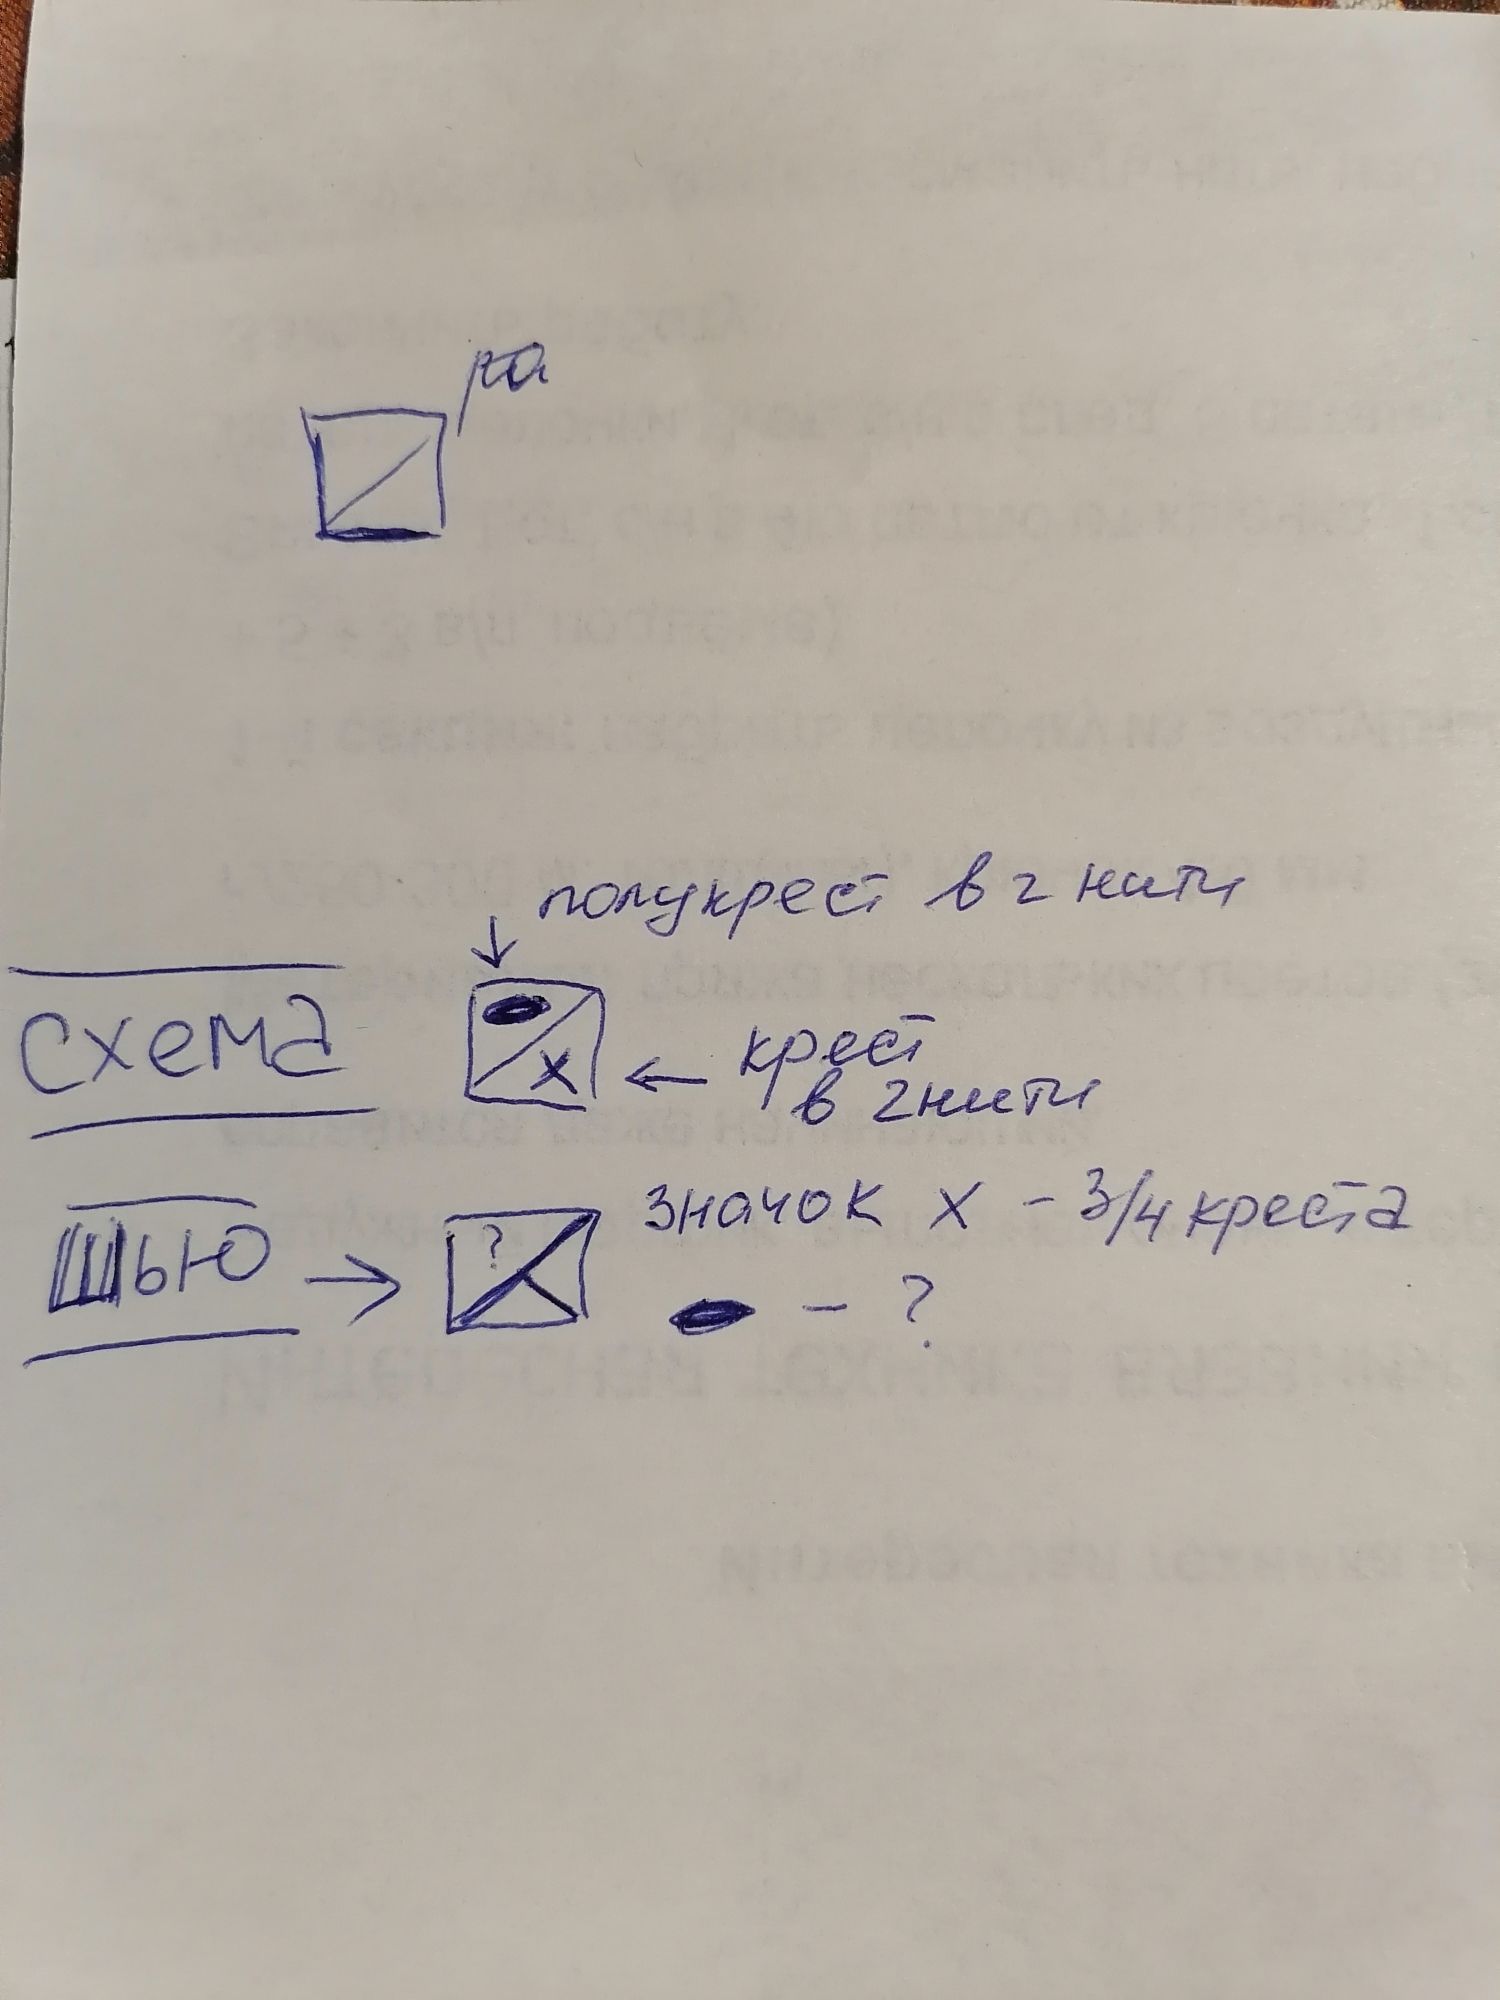 полукрест в 2 нити
схема
х
крест
в 2 нити
шью
?
значок х - 3/4 креста
- ?